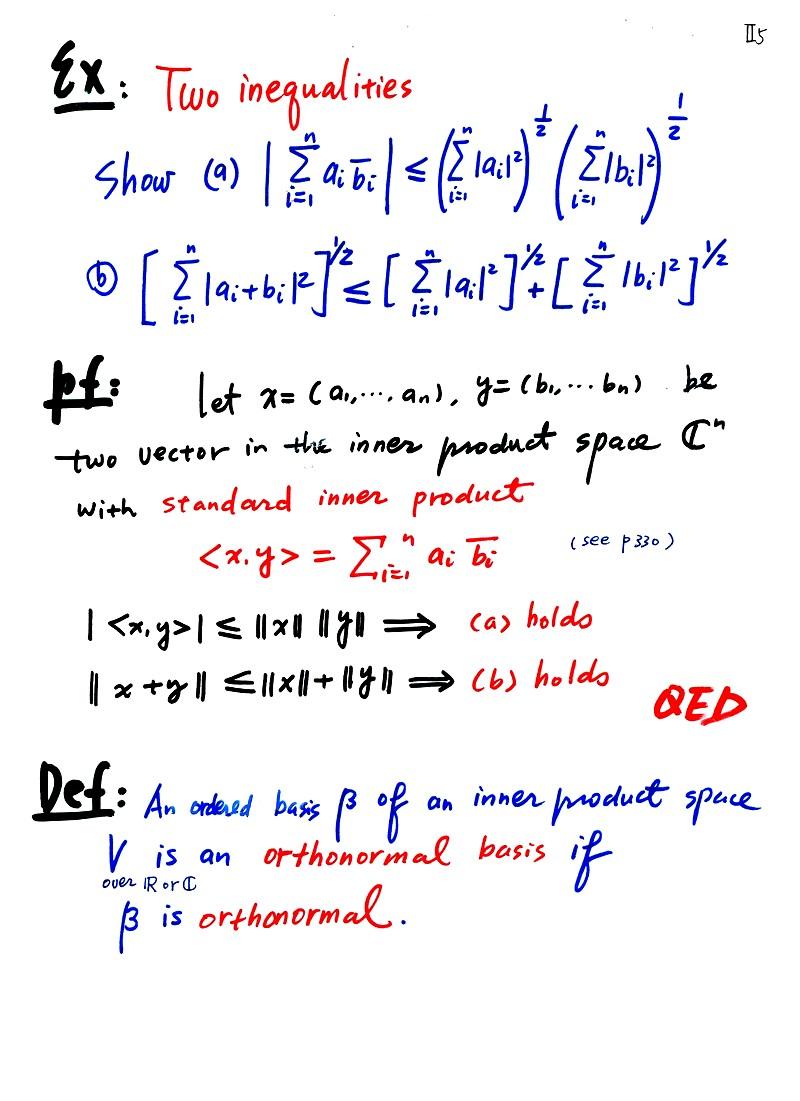 II5
Ex: Two inequalities
Show (a) | ∑_{i=1}^{n} a_i b̄_i | ≤ (∑_{i=1}^{n} |a_i|²)^{1/2} (∑_{i=1}^{n} |b_i|²)^{1/2}
ⓑ [ ∑_{i=1}^{n} |a_i+b_i|² ]^{1/2} ≤ [ ∑_{i=1}^{n} |a_i|² ]^{1/2} + [ ∑_{i=1}^{n} |b_i|² ]^{1/2}
pf: let x= (a₁,..., a_n), y= (b₁,... b_n) be
two vector in the inner product space ℂⁿ
with standard inner product
<x,y> = ∑_{i=1}^{n} a_i b̄_i (see p330)
| <x,y> | ≤ ||x|| ||y|| ⟹ (a) holds
|| x+y || ≤ ||x|| + ||y|| ⟹ (b) holds
QED
Def: An ordered basis β of an inner product space
V is an orthonormal basis if
over ℝ or ℂ
β is orthonormal.